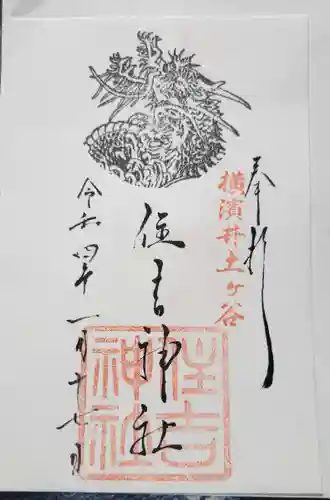 奉拝
横濱井土ヶ谷
住吉神社
住吉
神社
令和四年一月十七日